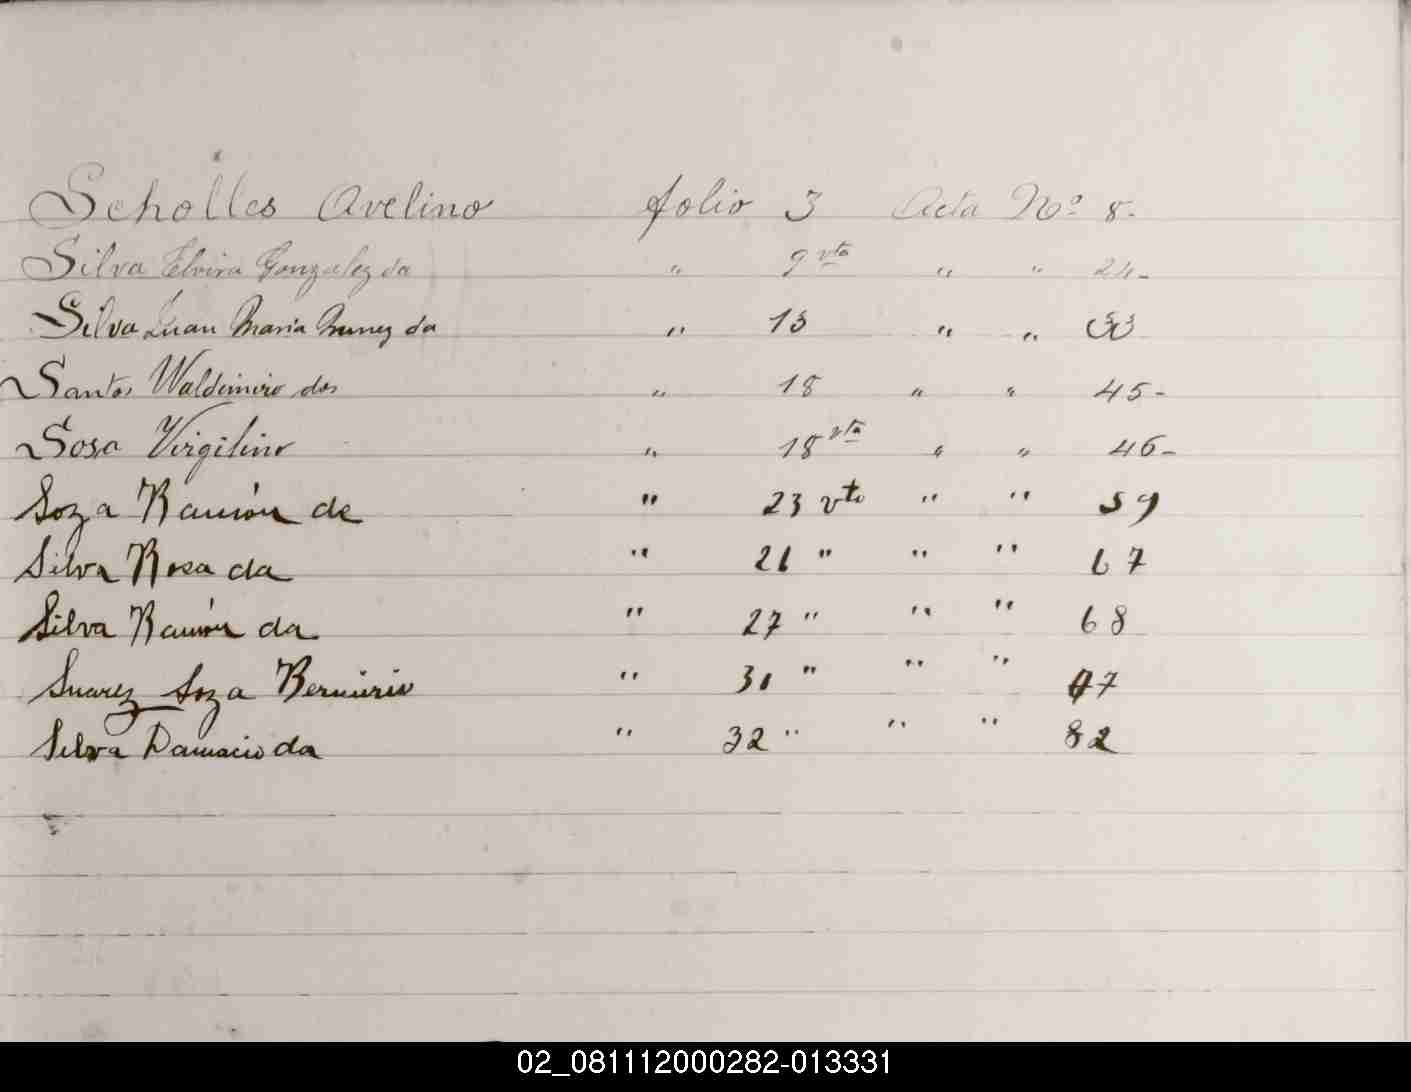 Scholles Avelino folio 3 Acta Nº 8-
Silva Elvira Gonzalez da " 9 vta " " 24-
Silva Juan Maria Nunez da " 13 " " 33
Santos Waldimiro dos " 18 " " 45-
Sosa Virgilino " 18 vta " " 46-
Soza Ramón de " 23 vto " " 59
Silva Rosa da " 26 " " " 67
Silva Ramón da " 27 " " " 68
Suarez Soza " 31 " " " 77
Silva Damacio da " 32 " " " 82
02_081112000282-013331